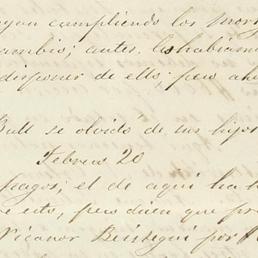 yan cumpliendo los
cambio; antes les habiamos
disponer de ello; pero ah
Bull se olvidó de sus hijos
Febrero 20
pagos; el de aqui ha h
e esto, pero dicen que pr
Nicanor Beistegui por